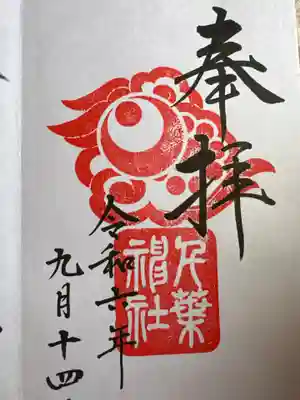 奉拝
片葉
神社
令和六年
九月十四